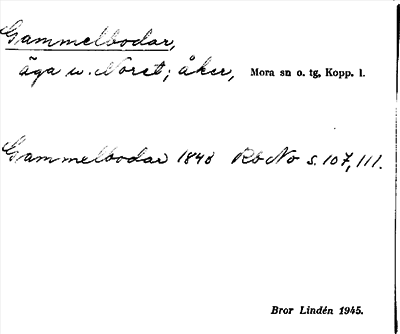 Gammelbodar,
äga u. Noret; åker, Mora sn o. tg, Kopp. l.
Gammelbodar 1848 Rb No s. 107, 111.
Bror Lindén 1945.